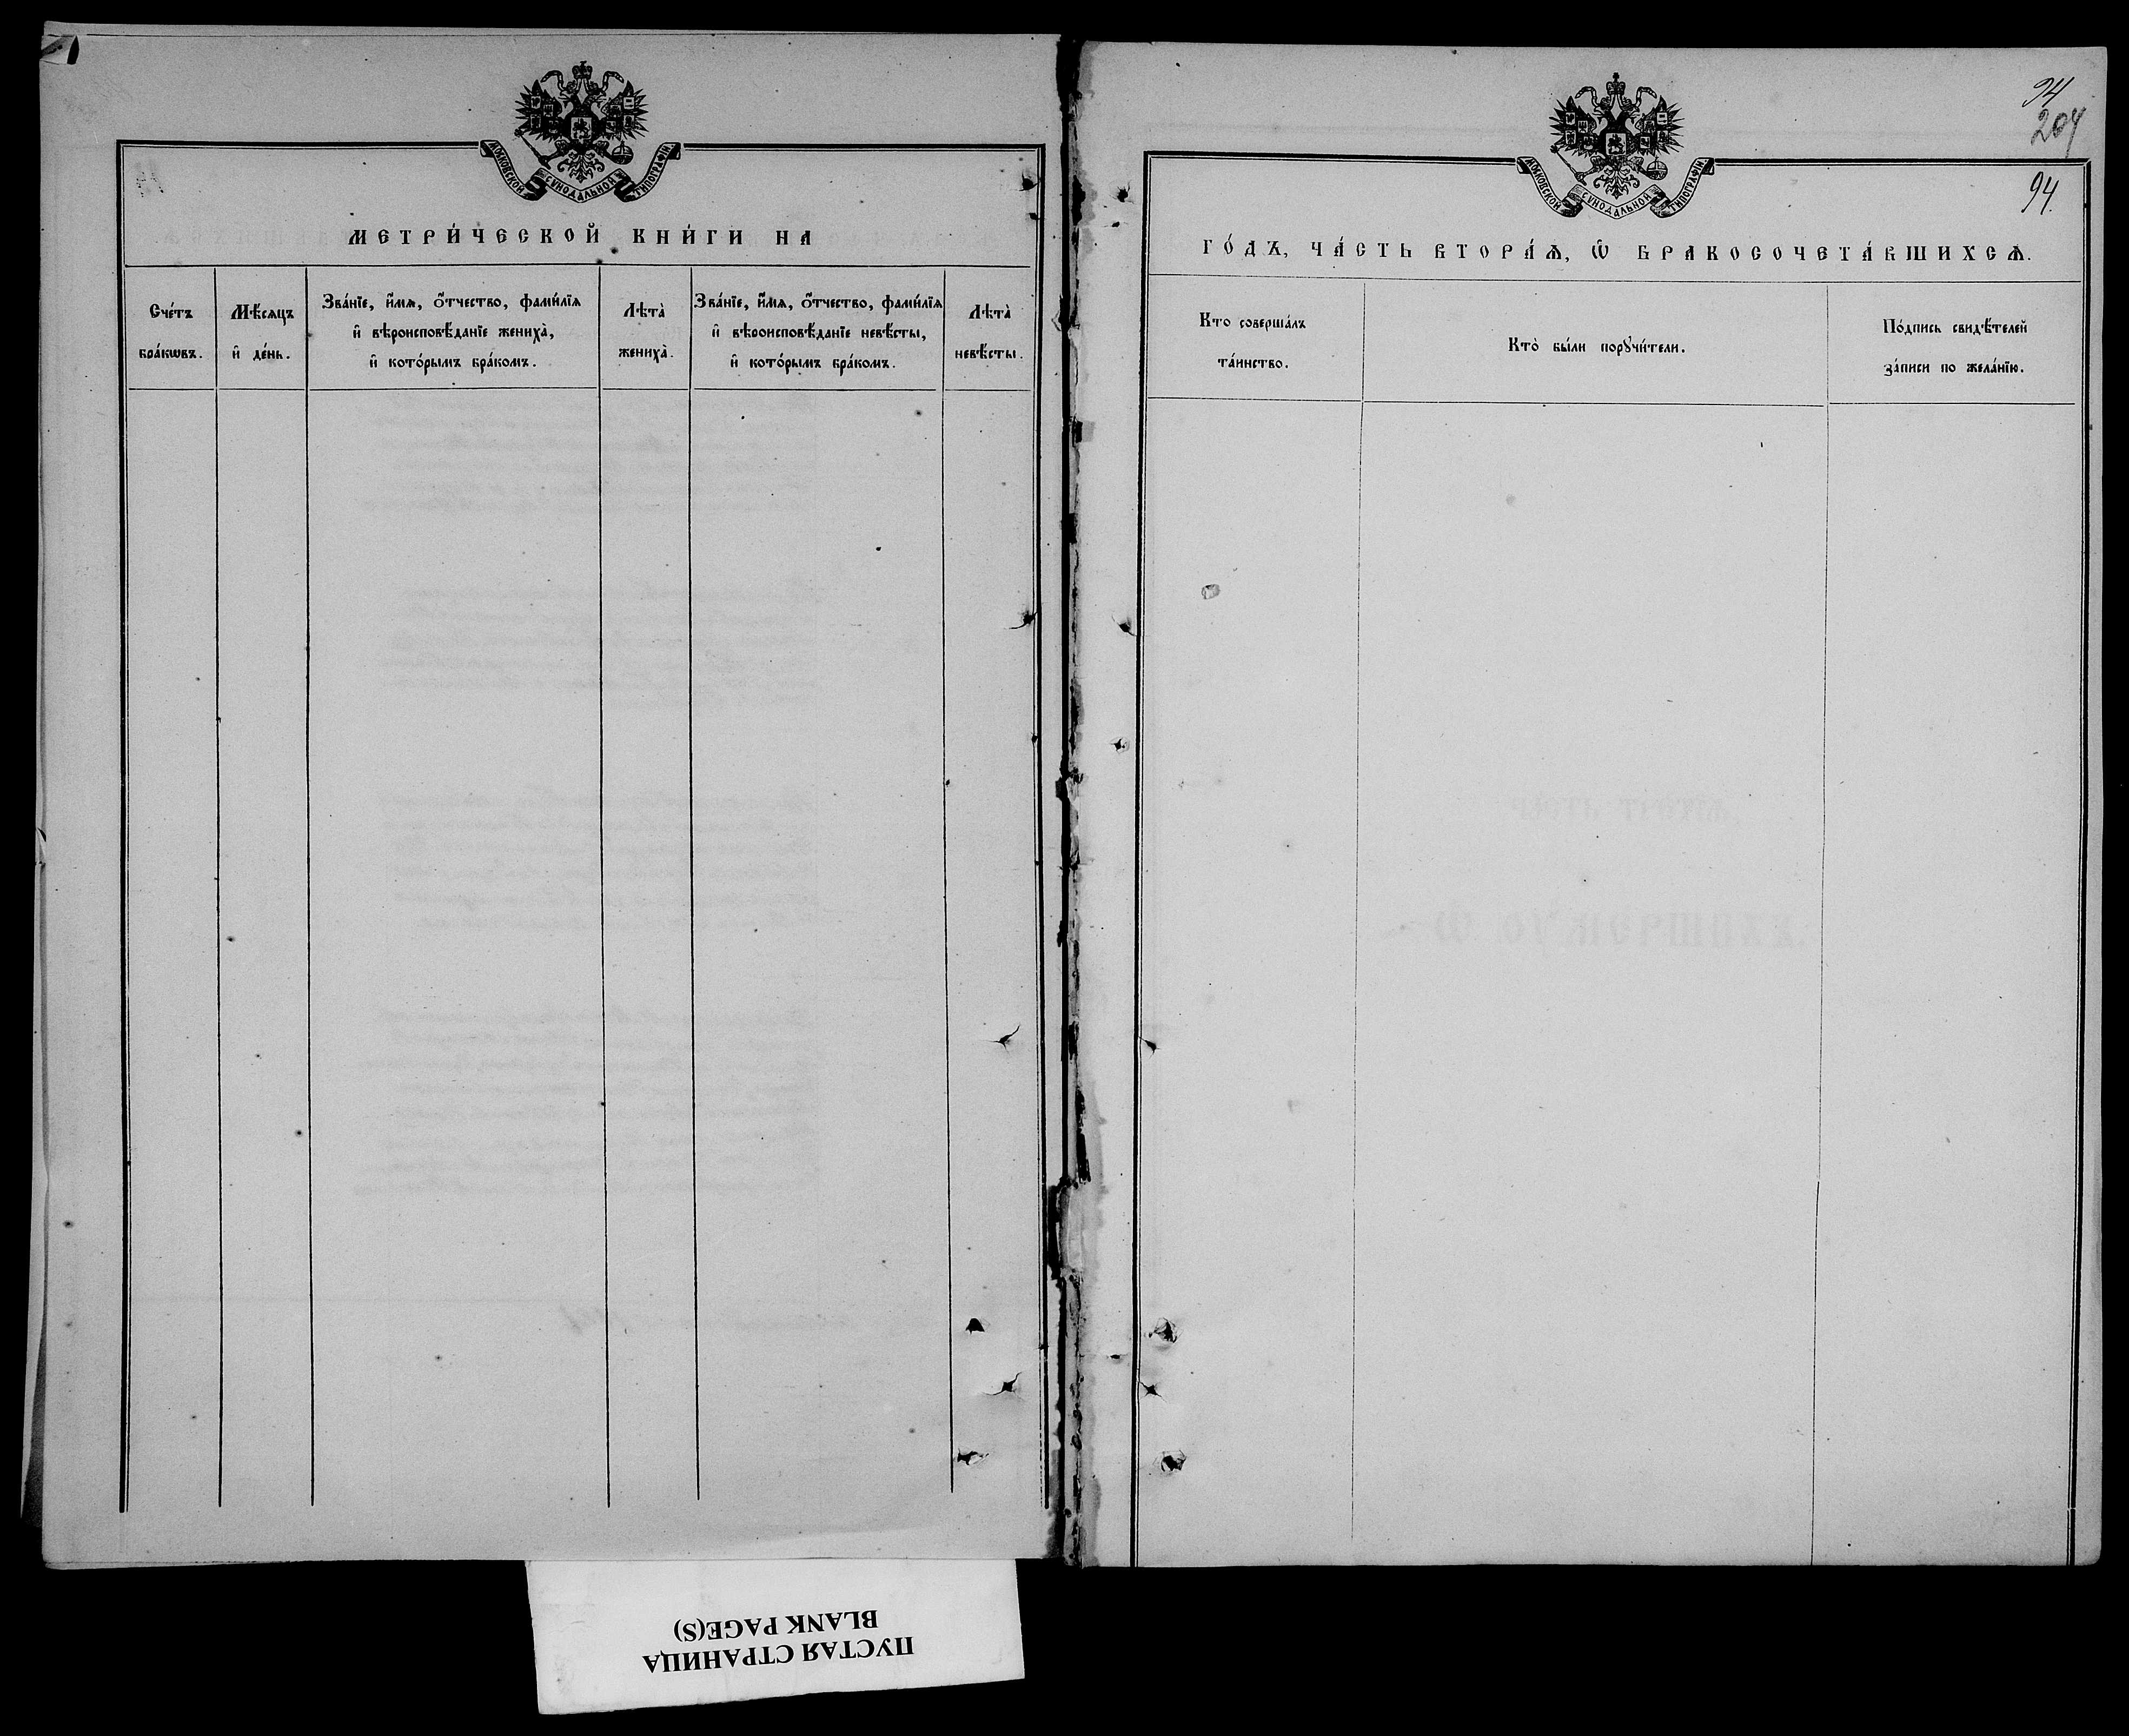 МОСКОВСКОЙ СѴНОДАЛЬНОЙ ТИПОГРАФІИ.
МЕТРИ́ЧЕСКОЙ КНИ́ГИ НА
Сче́тъ
бра́кѡвъ.
Мѣ́сяцъ
и҆ де́нь.
Зва́нїе, и҆́мѧ, ѻ҆́тчество, фами́лїѧ
и҆ вѣроисповѣ́данїе жениха̀,
и҆ кото́рымъ бра́комъ.
Лѣта̀
жениха̀.
Зва́нїе, и҆́мѧ, ѻ҆́тчество, фами́лїѧ
и҆ вѣроисповѣ́данїе невѣ́сты,
и҆ кото́рымъ бра́комъ.
Лѣта̀
невѣ́сты.
94
204
МОСКОВСКОЙ СѴНОДАЛЬНОЙ ТИПОГРАФІИ.
94.
ГО́ДЪ, ЧА́СТЬ ВТОРА́Ѧ, Ѡ҆ БРАКОСОЧЕТА́ВШИХСѦ.
Кто соверша́лъ
та́инство.
Кто̀ бы́ли порꙋчи́тели.
По́дпись свидѣ́телей
за́писи по жела́нїю.
ПУСТАЯ СТРАНИЦА
BLANK PAGE(S)